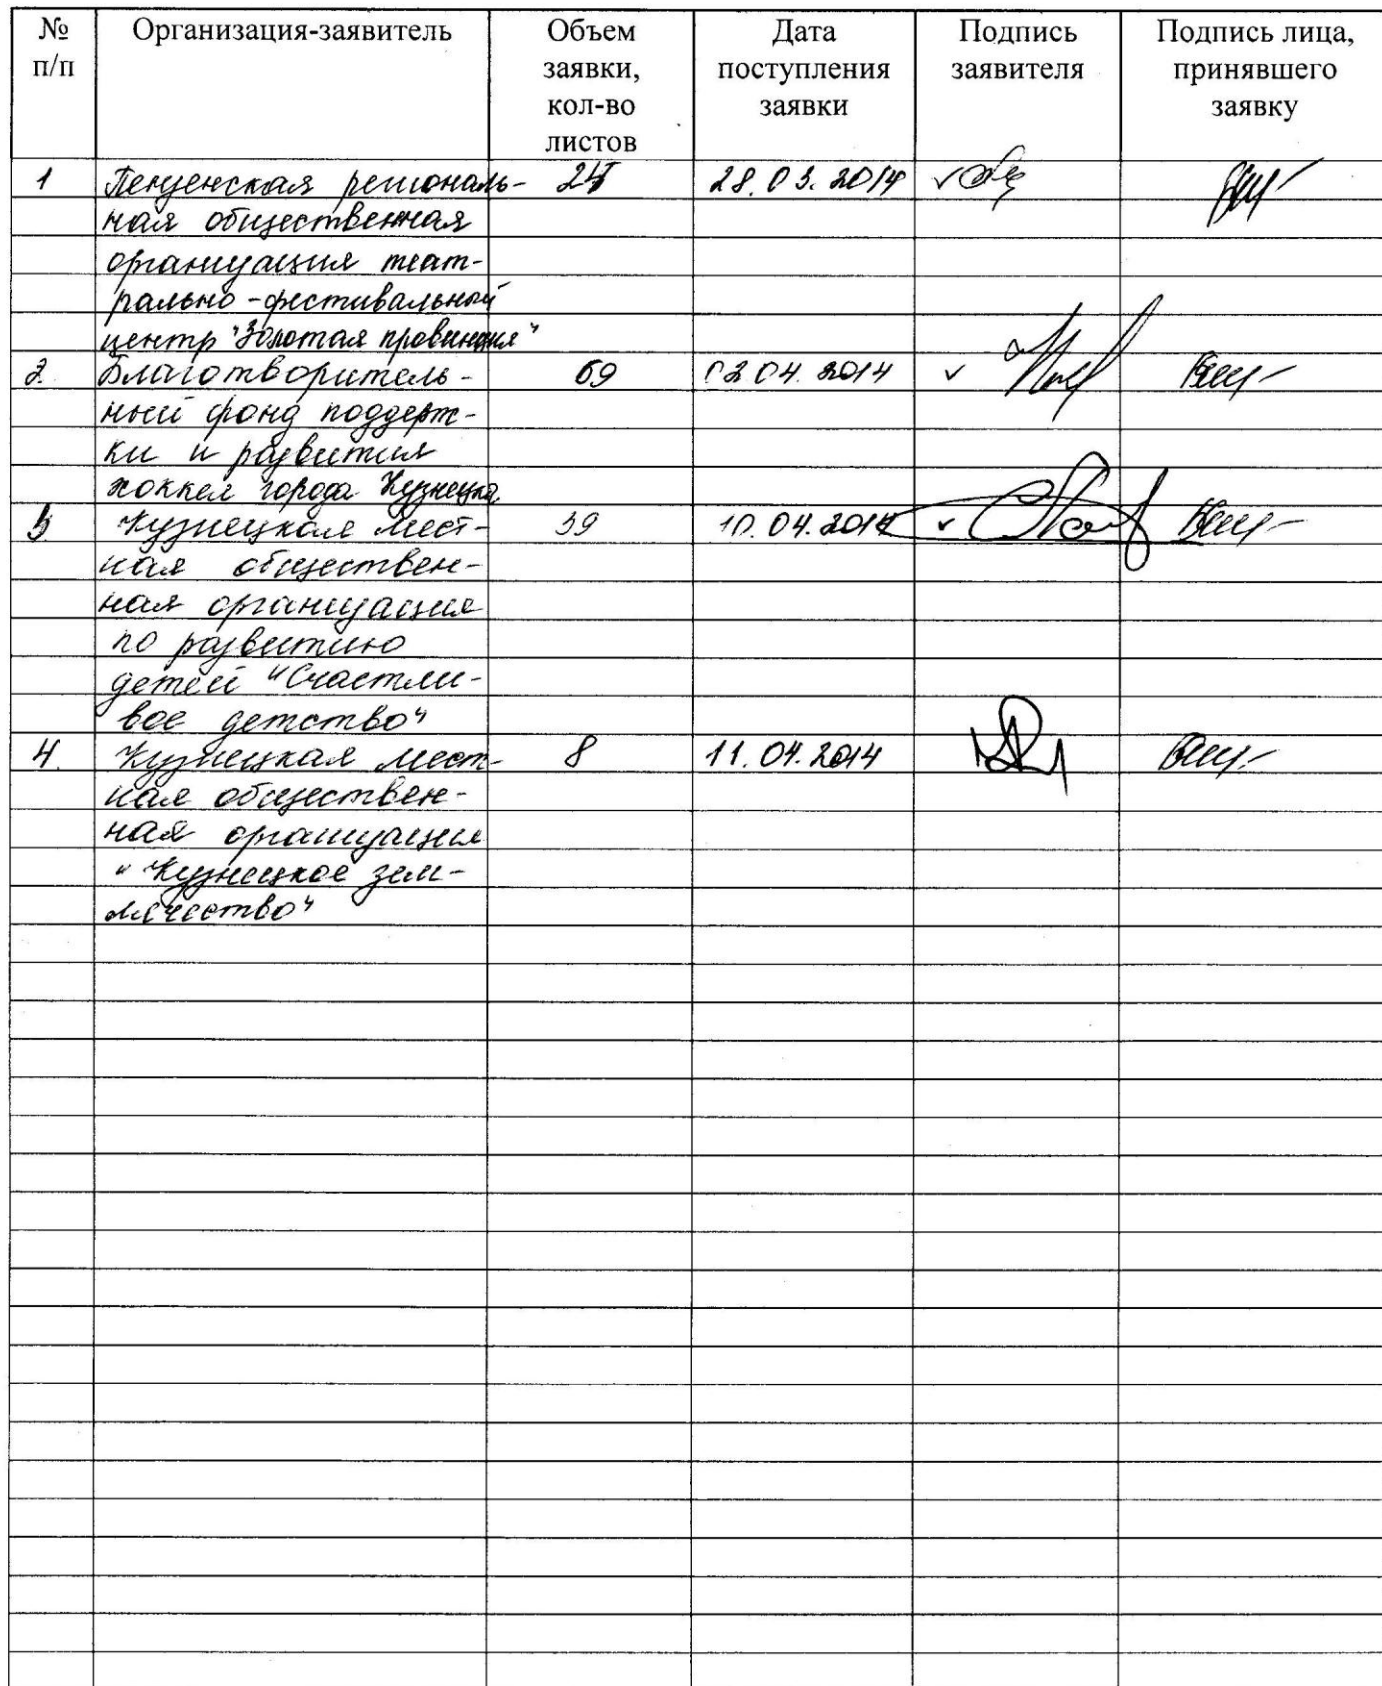 № п/п Организация-заявитель Объем заявки, кол-во листов Дата поступления заявки Подпись заявителя Подпись лица, принявшего заявку
1 Пензенская региональ- 28.03.2014
ная общественная
организация теат-
рально-фестивальный
центр "Золотая провинция"
2. Благотворитель- 69 02.04.2014
ный фонд поддерж-
ки и развития
хоккея города Кузнецка
3 Кузнецкая мест- 39 10.04.2014
ная обществен-
ная организация
по развитию
детей "Счастли-
вое детство"
4. Кузнецкая мест- 8 11.04.2014
ная обществен-
ная организация
"Кузнецкое зем-
лячество"